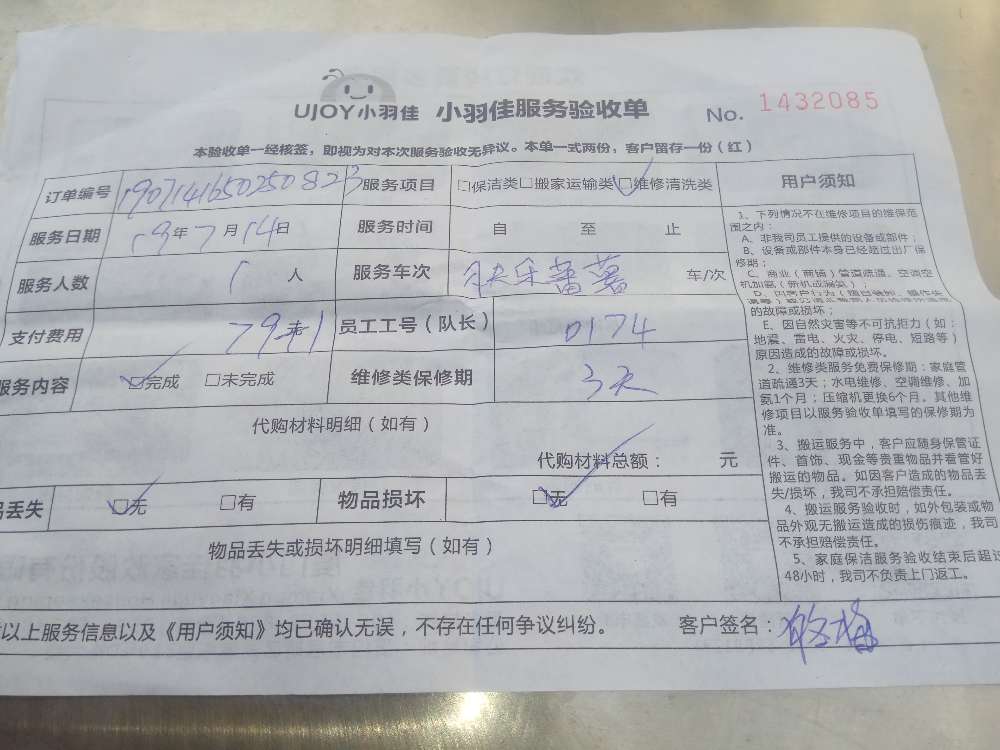 UJOY小羽佳 小羽佳服务验收单 No. 1432085
本验收单一经核签，即视为对本次服务验收无异议。本单一式两份，客户留存一份（红）
订单编号 服务项目 □保洁类□搬家运输类□维修清洗类
服务日期 19年7月14日 服务时间 自 至 止
服务人数 1 人 服务车次 车/次
支付费用 79 员工工号（队长） 0174
服务内容 □完成 □未完成 维修类保修期 3天
代购材料明细（如有）
代购材料总额： 元
丢失 □无 □有 物品损坏 □无 □有
物品丢失或损坏明细填写（如有）
用户须知
1、下列情况不在维修项目的维保范
围之内：
A、非我司员工提供的设备或部件；
B、设备或部件本身已经超过出厂保
修期；
C、商业（商铺）管道疏通、空调空
机加氨（新机或漏氨）；
的故障或损坏；
E、因自然灾害等不可抗拒力（如：
地震、雷电、火灾、停电、短路等）
原因造成的故障或损坏。
2、维修类服务免费保修期：家庭管
道疏通3天；水电维修、空调维修、加
氨1个月；压缩机更换6个月。其他维
修项目以服务验收单填写的保修期为
准。
3、搬运服务中，客户应随身保管证
件、首饰、现金等贵重物品并看管好
搬运的物品。如因客户造成的物品丢
失/损坏，我司不承担赔偿责任。
4、搬运服务验收时，如外包装或物
品外观无搬运造成的损伤痕迹，我司
不承担赔偿责任。
5、家庭保洁服务验收结束后超过
48小时，我司不负责上门返工。
以上服务信息以及《用户须知》均已确认无误，不存在任何争议纠纷。 客户签名：